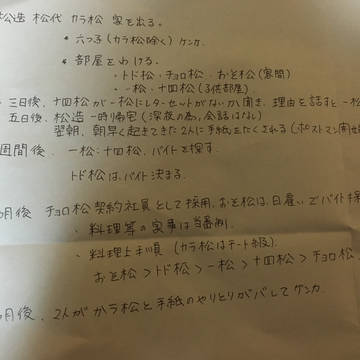 松造 松代 カラ松 家を出る。
・六つ子(カラ松除く)ケンカ.
・部屋をわける.
・トド松・チョロ松・おそ松(客間)
・一松・十四松(子供部屋)
三日後、十四松が一松にレターセットがないか聞き、理由を話すと一松
五日後、松造一時帰宅(深夜の為、会話はなし)
翌朝、朝早く起きてきた2人に手紙をたくされる(ポストマン開始
週間後 一松・十四松、バイトを探す.
トド松はバイト決まる.
月後 チョロ松契約社員として採用、おそ松は日雇いでバイト探
・料理等の家事は当番制.
・料理上手順(カラ松はチート級).
おそ松>トド松>一松>十四松>チョロ松.
月後、2人がカラ松と手紙のやりとりがバレてケンカ.